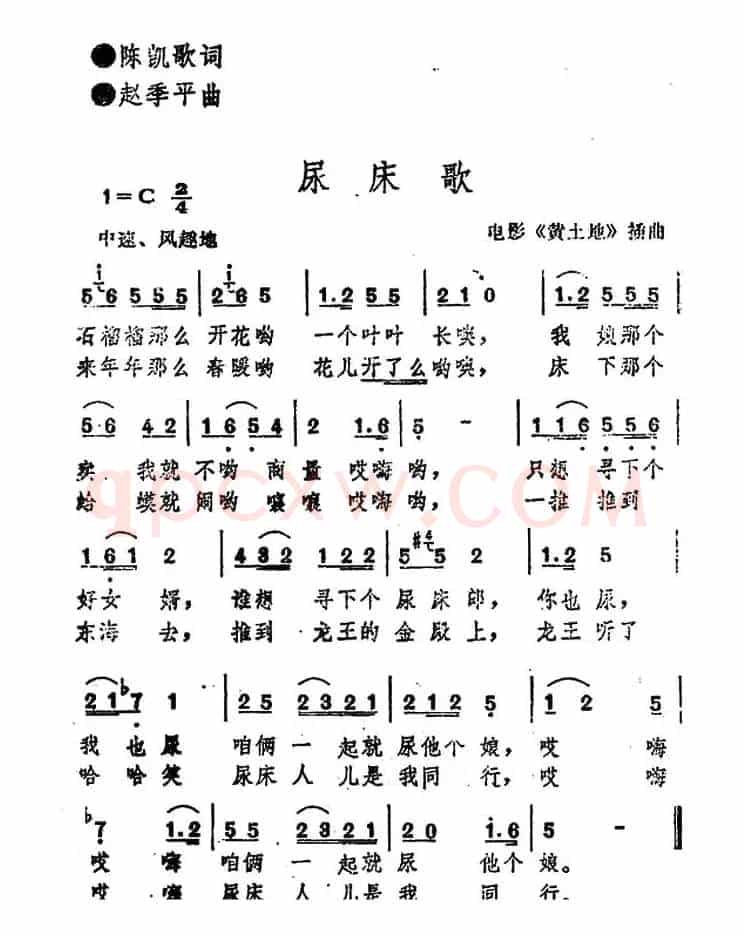 ●陈凯歌词
●赵季平曲
尿床歌
1=C 2/4
中速、风趣地
电影《黄土地》插曲
5 6 5 5 5 | 2 6 5 | 1.2 5 5 | 2 1 0 | 1.2 5 5 5 |
石榴榴那么 开花哟 一个叶叶 长唉， 我 娘那个
来年年那么 春暖哟 花儿开了么哟唉， 床 下那个
5·6 4 2 | 1 6 5 4 | 2 1.6 | 5 - | 1 1 6 5 5 6 |
卖 我就 不哟 商量 哎嗨哟， 只想 寻下个
蛤 蟆就 闹哟 嚷嚷 哎嗨哟， 一推 推到
1 6 1 2 | 4 3 2 1 2 2 | 5 #4 5 2 | 1.2 5 |
好女 婿， 谁想 寻下个 尿床郎， 你也尿，
东海 去， 推到 龙王的 金殿上， 龙王听了
2 1 b7 1 | 2 5 2 3 2 1 | 2 1 2 5 | 1 2 5 |
我也尿 咱俩 一起就 尿他个 娘， 哎 嗨
哈哈笑 尿床 人儿是 我同 行， 哎 嗨
b7 1.2 | 5 5 2 3 2 1 | 2 0 1.6 | 5 - ‖
哎 嗨 咱俩 一起就 尿 他个 娘。
哎 嚷 尿床 人儿是 我 同 行。
qpcxw.COM